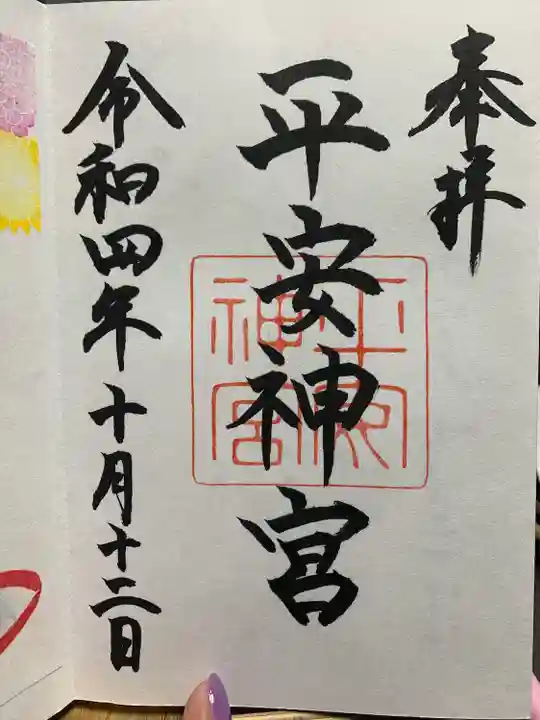 奉拝
平安神宮
平安神宮
令和四年十月十二日